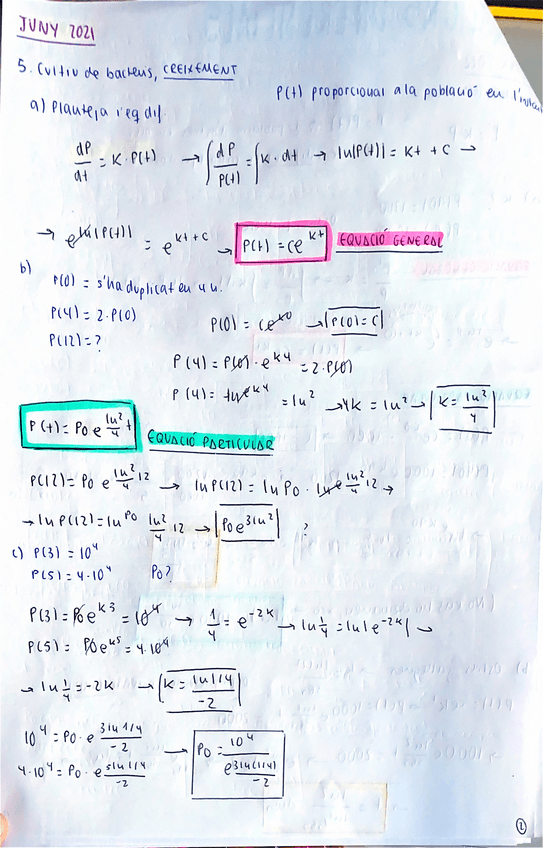 JUNY 2021
5. Cultiu de bacteris, CREIXEMENT
P(t) proporcional a la població en l'instant
a) Planteja l'eq dif.
dP/dt = K · P(t) → ∫ dP/P(t) = ∫ K · dt → ln|P(t)| = Kt + C →
→ e^ln|P(t)| = e^kt+c → P(t) = Ce^kt EQUACIÓ GENERAL
b)
P(0) = s'ha duplicat en 4 u.
P(4) = 2 · P(0)
P(0) = Ce^k0 → P(0) = C
P(12) = ?
P(4) = P(0) · e^k4 = 2 · P(0)
P(4) = ln e^k4 = ln2 → 4K = ln2 → K = ln2/4
P(t) = P0 e^ln2/4 t EQUACIÓ PARTICULAR
P(12) = P0 e^ln2/4 12 → ln P(12) = ln P0 · ln e^ln2/4 12 →
→ ln P(12) = ln P0 ln2/4 12 → P0 e^3ln2 ?
c) P(3) = 10^4
P(5) = 4·10^4 P0?
P(3) = P0 e^k3 = 10^4 → 1/4 = e^-2k → ln 1/4 = ln|e^-2k| →
P(5) = P0 e^k5 = 4·10^4
→ ln 1/4 = -2K → K = ln 1/4 / -2
10^4 = P0 · e^3ln 1/4 / -2 → P0 = 10^4 / e^3ln(1/4) / -2
4·10^4 = P0 · e^5ln 1/4 / -2
2